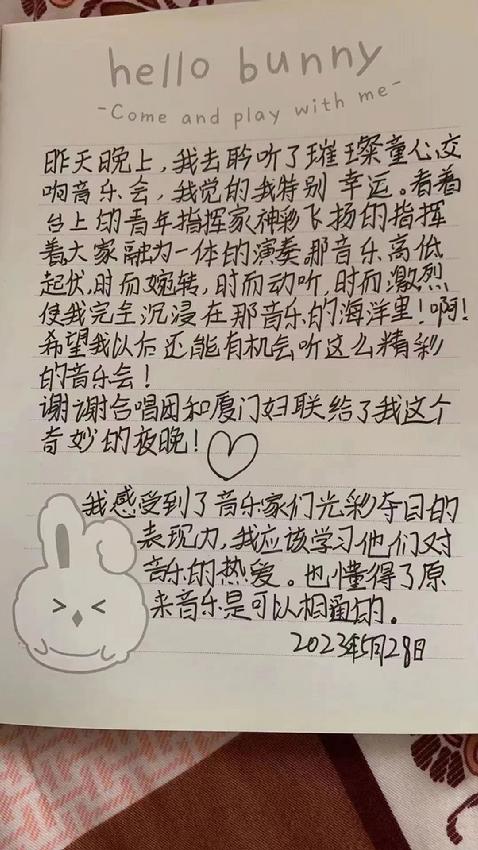 hello bunny
-Come and play with me-
昨天晚上，我去聆听了璀璨童心交
响音乐会，我觉的我特别幸运。看着
台上的青年指挥家神彩飞扬的指挥
着大家融为一体的演奏。那音乐高低
起伏，时而婉转，时而动听，时而激烈
使我完全沉浸在那音乐的海洋里！啊！
希望我以后还能有机会听这么精彩
的音乐会！
谢谢合唱团和厦门妇联给了我这个
奇妙的夜晚！
我感受到了音乐家们光彩夺目的
表现力，我应该学习他们对
音乐的热爱。也懂得了原
来音乐是可以相通的。
2023年5月28日